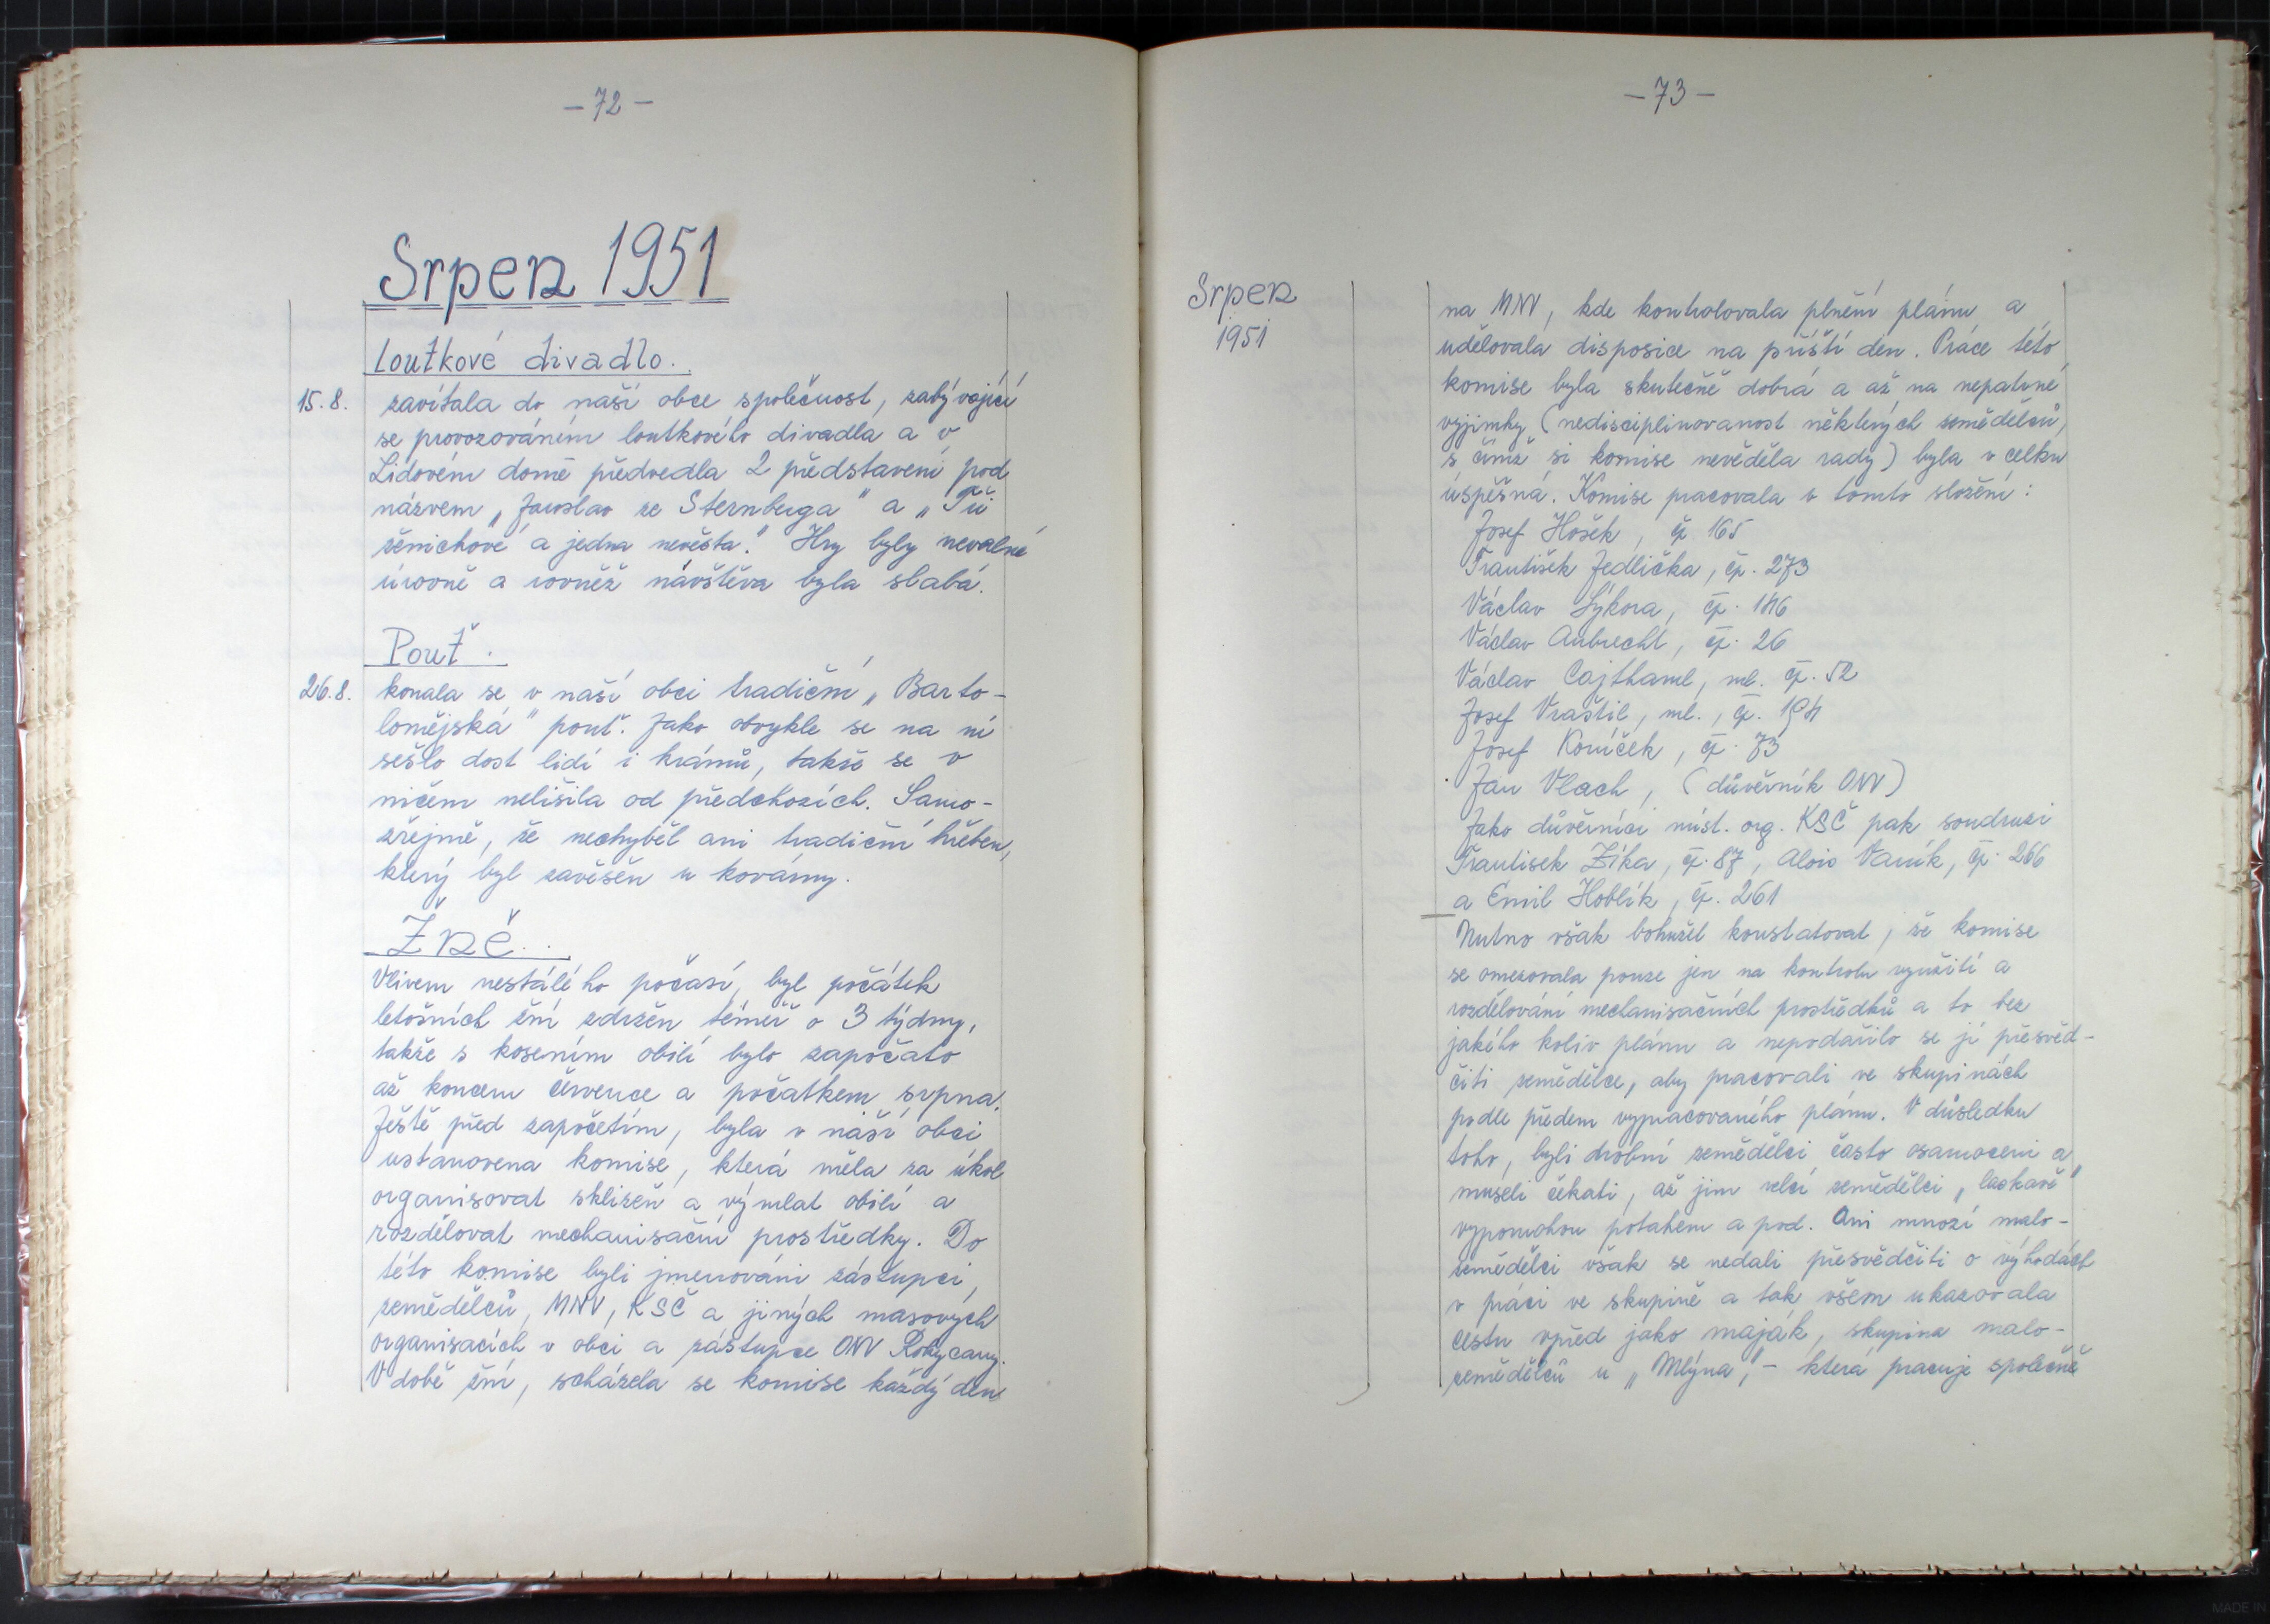 — 72 —
Srpen 1951
Loutkové divadlo.
15.8. zavítala do naší obce společnost, zabývající
se provozováním loutkového divadla a v
Lidovém domě předvedla 2 představení pod
názvem „Jaroslav ze Sternberga" a „Tři
ženichové a jedna nevěsta." Hry byly nevalné
úrovně a rovněž návštěva byla slabá.
Pouť.
26.8. konala se v naší obci tradiční „Barto-
lomějská" pouť. Jako obvykle se na ni
sešlo dost lidí i krámů, takže se v
ničem nelišila od předchozích. Samo-
zřejmě, že nechyběl ani tradiční hřeben,
který byl zavěšen u kovárny.
Žně.
Vlivem nestálého počasí, byl počátek
letošních žní zdržen téměř o 3 týdny,
takže s kosením obilí bylo započato
až koncem července a počátkem srpna.
Ještě před započetím, byla v naší obci
ustanovena komise, která měla za úkol
organisovat sklizeň a výmlat obilí a
rozdělovat mechanisační prostředky. Do
této komise byli jmenováni zástupci,
zemědělců, MNV, KSČ a jiných masových
organisacích v obci a zástupce ONV Rokycany.
V době žní, scházela se komise každý den
— 73 —
Srpen
1951
na MNV, kde kontrolovala plnění plánu a
udělovala disposice na příští den. Práce této
komise byla skutečně dobrá a až na nepatrné
vyjimky (nedisciplinovanost některých zemědělců,
s čímž si komise nevěděla rady) byla v celku
úspěšná. Komise pracovala v tomto složení:
Josef Hošek, čp. 165
František Jedlička, čp. 273
Václav Sýkora, čp. 146
Václav Aubrecht, čp. 26
Václav Cajthaml, ml. čp. 52
Josef Vraštil, ml., čp.
Josef Koníček, čp. 73
Jan Vlach, (důvěrník ONV)
Jako důvěrníci míst. org. KSČ pak soudruzi
František Zíka, čp. 87, Alois Vaník, čp. 266
a Emil Hoblík, čp. 261
Nutno však bohužel konstatovat, že komise
se omezovala pouze jen na kontrolu využití a
rozdělování mechanisačních prostředků a to bez
jakého koliv plánu a nepodařilo se jí přesvěd-
čiti zemědělce, aby pracovali ve skupinách
podle předem vypracovaného plánu. V důsledku
toho, byli drobní zemědělci často osamoceni a
museli čekati, až jim velcí zemědělci „laskavě"
vypomohou potahem a pod. Ani mnozí malo-
zemědělci však se nedali přesvědčiti o výhodách
v práci ve skupině a tak všem ukazovala
cestu vpřed jako maják, skupina malo-
zemědělců u „Mlýna", – která pracuje společně